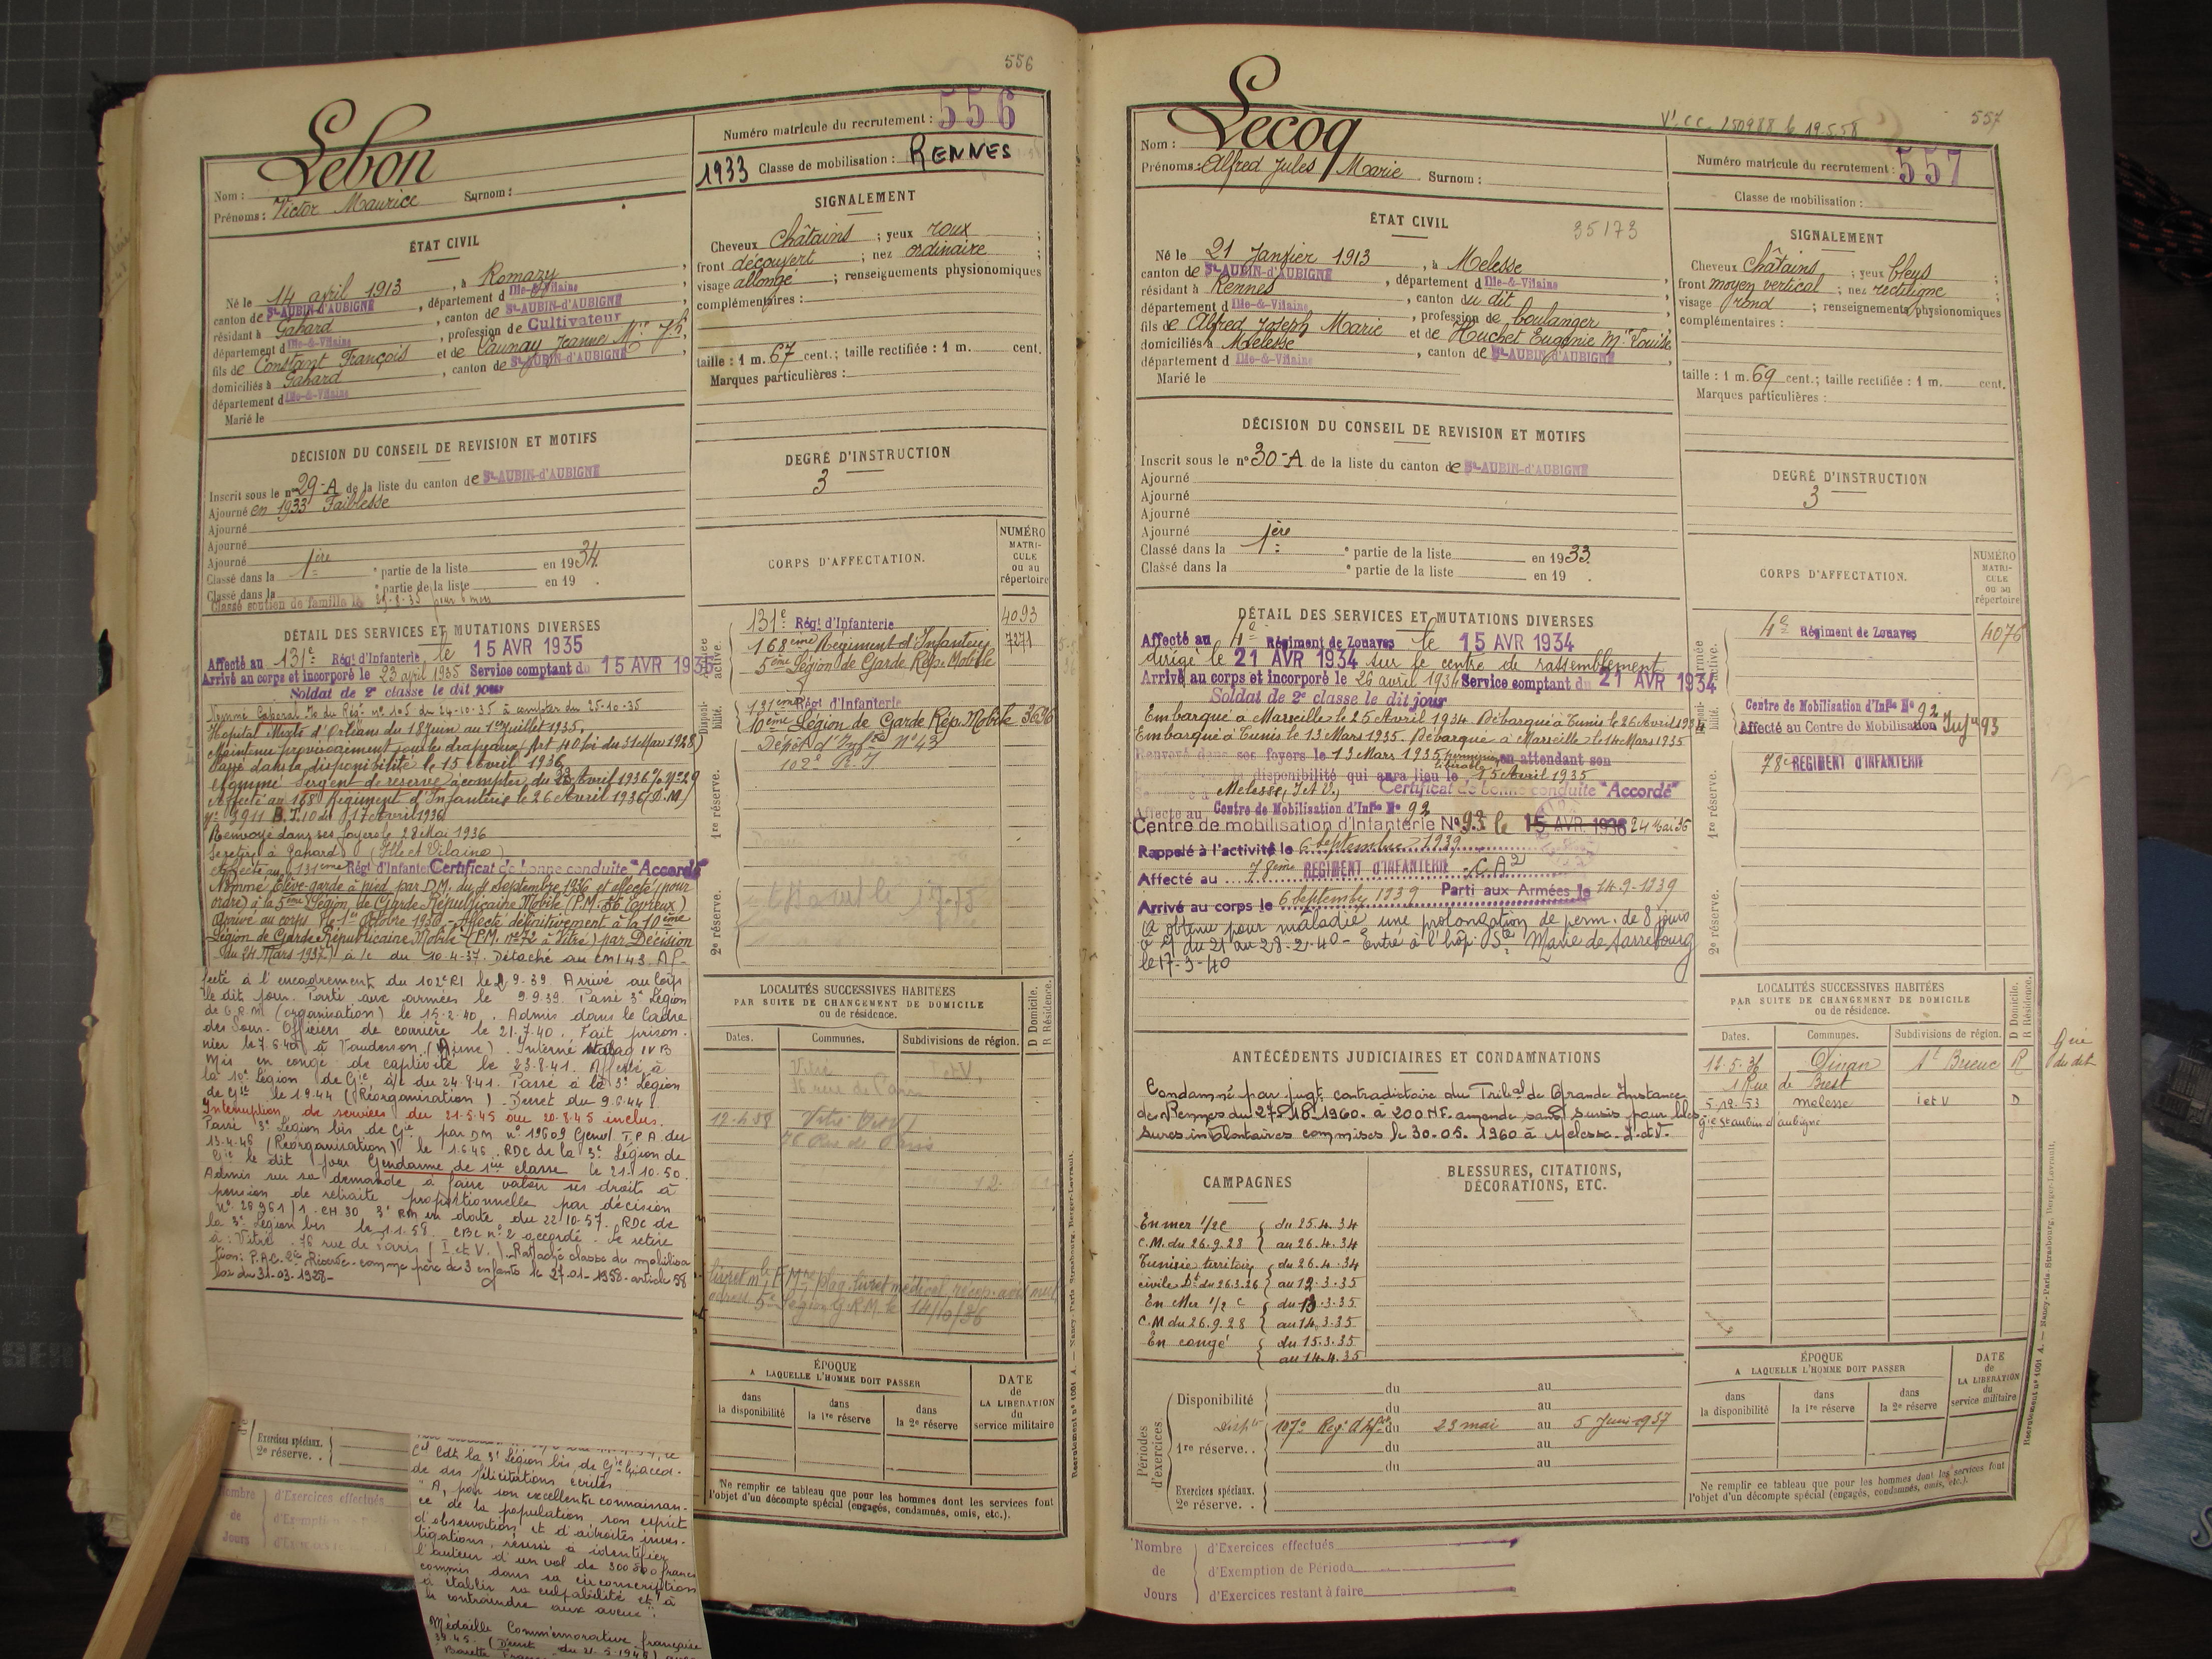 556
Lebon
Nom :
Prénoms : Victor Maurice Surnom :
ÉTAT CIVIL
Né le 14 avril 1913, à Romazy,
canton de St-AUBIN-d'AUBIGNÉ, département d Ille-&-Vilaine
résidant à Gahard, canton de St-AUBIN-d'AUBIGNÉ
département d Ille-&-Vilaine, profession de Cultivateur
fils de Constant François et de Launay Jeanne Mie Jh,
domiciliés à Gahard, canton de St-AUBIN-d'AUBIGNÉ
département d Ille-&-Vilaine
Marié le
DÉCISION DU CONSEIL DE REVISION ET MOTIFS
Inscrit sous le n° 29-A de la liste du canton de St-AUBIN-d'AUBIGNÉ
Ajourné en 1933 Faiblesse
Ajourné
Ajourné
Ajourné
Classé dans la 1ère partie de la liste en 1934
Classé dans la e partie de la liste en 19 .
Classé soutien de famille le pour 6 mois
DÉTAIL DES SERVICES ET MUTATIONS DIVERSES
Affecté au 131e Régt d'Infanterie le 15 AVR 1935
Arrivé au corps et incorporé le 23 avril 1935 Service comptant du 15 AVR 1935
Soldat de 2e classe le dit jour
Nommé Caporal du Rég. n° 105 du 24-10-35 à compter du 25-10-35
Hopital Mixte d'Orléans du 18 Juin au 1er Juillet 1935.
Maintenu provisoirement sous les drapeaux (Art 40 loi du 31 Mars 1928)
Passé dans la disponibilité le 15 Avril 1936
Nommé Sergent de réserve à compter du Avril 1936
Affecté au 168e Régiment d'Infanterie le 26 Avril 1936 (D.M.)
n° 3911 B.T. 10 du 17 Avril 1936
Renvoyé dans ses foyers le 28 Mai 1936
Se retire à Gahard (Ille et Vilaine)
Affecté au 131ème Régt d'Infanterie Certificat de bonne conduite "Accordé"
Nommé Elève-garde à pied par D.M. du 4 septembre 1936 et affecté (pour
ordre) à la 5ème Légion de Garde Républicaine Mobile (P.M. Evreux)
Arrivé au corps le 1er Octobre 1936 - Affecté définitivement à la 10ème
Légion de Garde Républicaine Mobile (P.M. n° 72 à Vitré) par Décision
du 24 Mars 1937) à/c du 10-4-37. Détaché au CMI 43. Af-
fecté à l'encadrement du 102e RI le 9-39. Arrivé au Corps
le dit jour. Parti aux armées le 9.9.39. Passé 3e Légion
de G.R.M. (organisation) le 15-2-40. Admis dans le Cadre
des Sous-Officiers de carrière le 21-7-40. Fait prison-
nier le 7.6.40 à Vaudesson (Aisne). Interné Stalag IV B
Mis en congé de captivité le 23.8.41. Affecté à
la 10e Légion de Gie, à/c du 24-8-41. Passé à la 3e Légion
de Gie le 1.9.44 (Réorganisation). Décret du 9.6.44.
Interruption de services du 21-5-45 au 20-8-45 inclus.
Passé 3e Légion bis de Gie par DM n° 19609 Gend. T.P.A. du
13-4-46 (Réorganisation) le 1.6.46. RDC de la 3e Légion de
Gie le dit jour Gendarme de 1ère classe le 21-10-50.
Admis sur sa demande à faire valoir ses droits à
pension de retraite proportionnelle par décision
n° 28961/1-CH 30 3e RM en date du 22-10-57. RDC de
la 3e Légion bis le 1-1-58. CBC n° 2 accordé. Se retire
à : Vitré 76 rue de Paris (I et V.) Rattaché classe de mobilisa
tion: P.A.C. 2e Réserve - comme père de 3 enfants le 27-01-1958 - article 58
loi du 31-03-1928 -
Exercices spéciaux.
2e réserve. .
Nombre d'Exercices effectués
de d'Exemption
Jours
Cel Cdt la 3e Légion bis de Gie lui accor-
de des félicitations écrites
"A, par son excellente connaissan-
ce de la population, son esprit
d'observation et d'adroites inves-
tigations, réussi à identifier
l'auteur d'un vol de 300 000 francs
commis dans sa circonscription
à établir sa culpabilité et à
le contraindre aux aveux".
Médaille Commémorative française
39-45. (Décret du 21-5-1946)
Numéro matricule du recrutement : 556
1933 Classe de mobilisation : RENNES
SIGNALEMENT
Cheveux Châtains ; yeux roux ;
front découvert ; nez ordinaire ;
visage allongé ; renseignements physionomiques
complémentaires :
taille : 1 m. 67 cent.; taille rectifiée : 1 m. cent.
Marques particulières :
DEGRÉ D'INSTRUCTION
3
CORPS D'AFFECTATION.
NUMÉRO MATRI- CULE ou au répertoire
Armée active.
131e Régt d'Infanterie 4093
168ème Régiment d'Infanterie 7271
5ème Légion de Garde Rép. Mobile
Disponi- bilité.
131ème Régt d'Infanterie
10ème Légion de Garde Rép. Mobile 3696
1re réserve.
Dépôt d'Infie N° 43
102e R.I
2e réserve.
LOCALITÉS SUCCESSIVES HABITÉES
PAR SUITE DE CHANGEMENT DE DOMICILE
ou de résidence.
Dates. Communes. Subdivisions de région. D Domicile. R Résidence.
Vitré I et V,
76 rue de Paris
Vitré
76 Rue de Paris
5e Légion G.R.M. le 14/10/36
ÉPOQUE
A LAQUELLE L'HOMME DOIT PASSER
dans la disponibilité
dans la 1re réserve
dans la 2e réserve
DATE de LA LIBÉRATION du service militaire
Ne remplir ce tableau que pour les hommes dont les services font
l'objet d'un décompte spécial (engagés, condamnés, omis, etc.).
Recrutement n° 1091 A. — Nancy-Paris-Strasbourg, Berger-Levrault.
557
V' C.C. 150988 le 19.5.58
Lecoq
Nom :
Prénoms : Alfred Jules Marie Surnom :
ÉTAT CIVIL
35173
Né le 21 Janvier 1913, à Melesse
canton de St-AUBIN-d'AUBIGNÉ, département d Ille-&-Vilaine
résidant à Rennes, canton du dit
département d Ille-&-Vilaine, profession de boulanger
fils de Alfred Joseph Marie et de Huchet Eugénie Mie Louise
domiciliés à Melesse, canton de St-AUBIN-d'AUBIGNÉ
département d Ille-&-Vilaine
Marié le
DÉCISION DU CONSEIL DE REVISION ET MOTIFS
Inscrit sous le n° 30-A de la liste du canton de St-AUBIN-d'AUBIGNÉ
Ajourné
Ajourné
Ajourné
Ajourné
Classé dans la 1ère e partie de la liste en 1933.
Classé dans la e partie de la liste en 19 .
DÉTAIL DES SERVICES ET MUTATIONS DIVERSES
Affecté au 4e Régiment de Zouaves le 15 AVR 1934
dirigé le 21 AVR 1934 sur le centre de rassemblement
Arrivé au corps et incorporé le 26 avril 1934 Service comptant du 21 AVR 1934
Soldat de 2e classe le dit jour
Embarqué à Marseille le 25 Avril 1934. Débarqué à Tunis le 26 Avril 1934
Embarqué à Tunis le 13 Mars 1935. Débarqué à Marseille le 14 Mars 1935
Renvoyé dans ses foyers le 13 Mars 1935 en attendant son
disponibilité qui aura lieu le 15 Avril 1935
Melesse, I et V., Certificat de bonne conduite "Accordé"
Affecté au Centre de Mobilisation d'Infie N° 92
Centre de mobilisation d'Infanterie N° 93 le 15 AVR. 1936 24 Mai 36
Rappelé à l'activité le 6 septembre 1939
Affecté au 78ème REGIMENT D'INFANTERIE CA2
Arrivé au corps le 6 septembre 1939 Parti aux Armées le 14-9-1939
a obtenu pour maladie une prolongation de perm. de 8 jours
du 21 au 28-2-40 - Entré à l'hôp. Ste Marie de Sarrebourg
le 17-3-40
ANTÉCÉDENTS JUDICIAIRES ET CONDAMNATIONS
Condamné par jugt contradictoire du Tribal de Grande Instance
de Rennes du 27-10-1960 à 200 NF. amende sans sursis pour bles
sures involontaires commises le 30-05-1960 à Melesse. I. et V.
CAMPAGNES
En mer 1/2 C du 25.4.34
C.M. du 26.9.28 au 26.4.34
Tunisie territoire du 26.4.34
civile Dt du 26.3.26 au 12.3.35
En Mer 1/2 C du 13.3.35
C.M du 26.9.28 au 14.3.35
En congé du 15.3.35
au 14.4.35
BLESSURES, CITATIONS,
DÉCORATIONS, ETC.
Périodes d'exercices.
Disponibilité du au
du au
Dispté 107e Rég. d'Infie du 23 mai au 5 Juin 1937
1re réserve. . du au
du au
Exercices spéciaux.
2e réserve. .
Nombre de Jours
d'Exercices effectués
d'Exemption de Période
d'Exercices restant à faire
Numéro matricule du recrutement : 557
Classe de mobilisation :
SIGNALEMENT
Cheveux Châtains ; yeux bleus ;
front moyen vertical ; nez rectiligne ;
visage rond ; renseignements physionomiques
complémentaires :
taille : 1 m. 69 cent.; taille rectifiée : 1 m. cent.
Marques particulières :
DEGRÉ D'INSTRUCTION
3
CORPS D'AFFECTATION.
NUMÉRO MATRI- CULE ou au répertoire
Armée active.
4e Régiment de Zouaves 4076
Disponi- bilité.
Centre de Mobilisation d'Infie N° 92
Affecté au Centre de Mobilisation Inf 93
1re réserve.
78e REGIMENT D'INFANTERIE
2e réserve.
LOCALITÉS SUCCESSIVES HABITÉES
PAR SUITE DE CHANGEMENT DE DOMICILE
ou de résidence.
Dates. Communes. Subdivisions de région. D Domicile. R Résidence.
12-5-36 Dinan St Brieuc R Gie du dit
1 Rue de Brest
5-12-53 Melesse I et V D
Gie St aubin d'aubigné
ÉPOQUE
A LAQUELLE L'HOMME DOIT PASSER
dans la disponibilité
dans la 1re réserve
dans la 2e réserve
DATE de LA LIBÉRATION du service militaire
Ne remplir ce tableau que pour les hommes dont les services font
l'objet d'un décompte spécial (engagés, condamnés, omis, etc.).
Recrutement n° 1091 A. — Nancy-Paris-Strasbourg, Berger-Levrault.